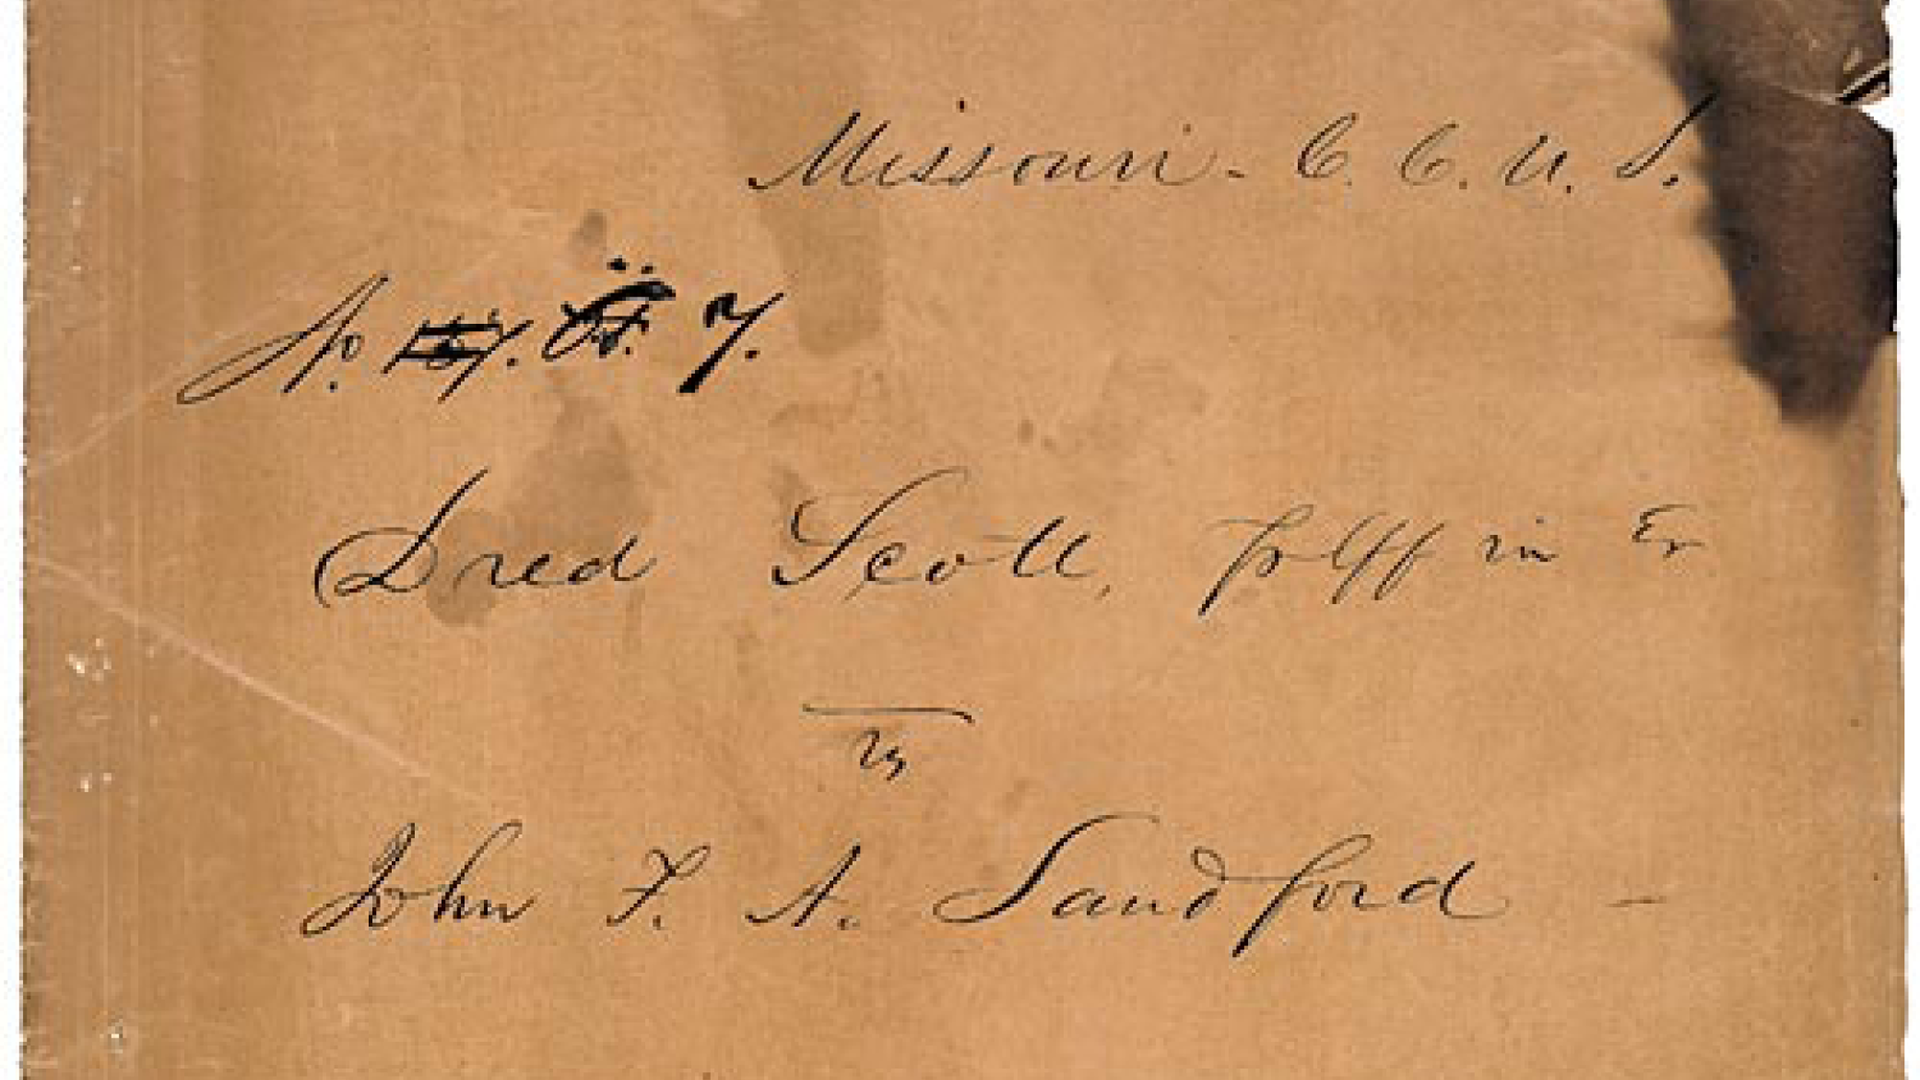 Missouri - C. C. U. S.
No. 7.
Dred Scott, Plff in Er
vs
John F. A. Sandford -